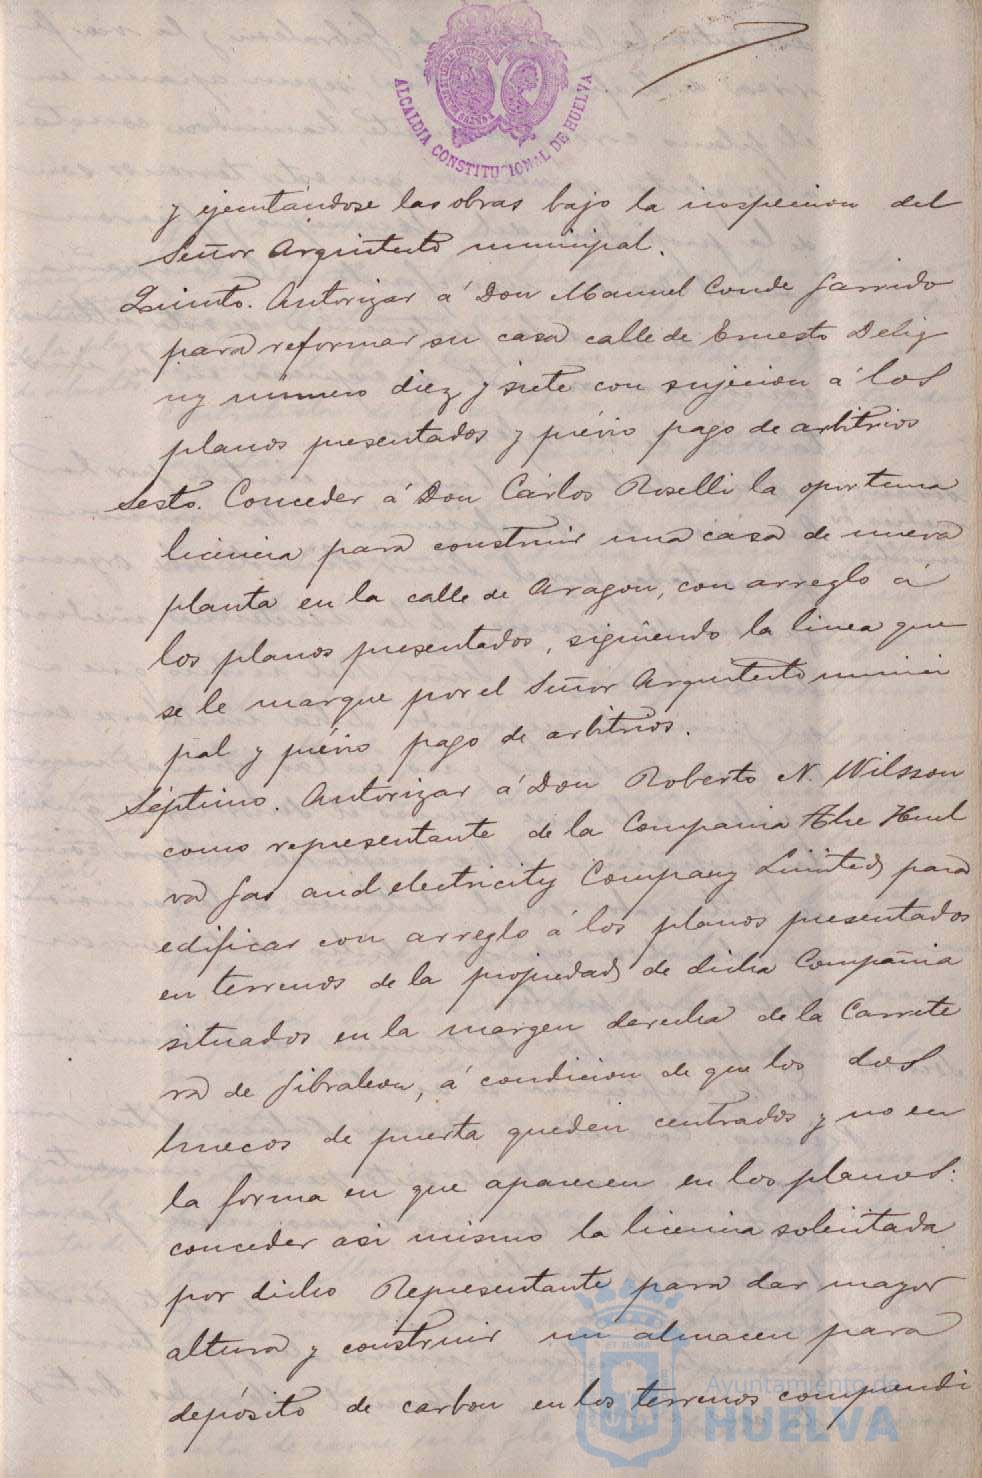 ALCALDIA CONSTITUCIONAL DE HUELVA
y ejecutándose las obras bajo la inspeccion del
Señor Arquitecto municipal.
Quinto. Autorizar á Don Manuel Conde Garrido
para reformar su casa calle de Ernesto Delig
ny número diez y siete con sujecion á los
planos presentados y prévio pago de arbitrios
Sesto. Conceder á Don Cárlos Roselli la oportuna
licencia para construir una casa de nueva
planta en la calle de Aragon, con arreglo á
los planos presentados, siguiendo la linea que
se le marque por el Señor Arquitecto munici
pal y prévio pago de arbitrios.
Séptimo. Autorizar á Don Roberto N. Wilsson
como representante de la Compania The Huel
va Gas and electricity Company Limited para
edificar con arreglo á los planos presentados
en terrenos de la propiedad de dicha Compañia
situados en la margen derecha de la Carrete
ra de Gibraleon, á condicion de que los dos
huecos de puerta queden centrados y no en
la forma en que aparecen en los planos:
conceder asi mismo la licencia solicitada
por dicho Representante para dar mayor
altura y construir un almacen para
depósito de carbon en los terrenos comprendi
Ayuntamiento de
HUELVA